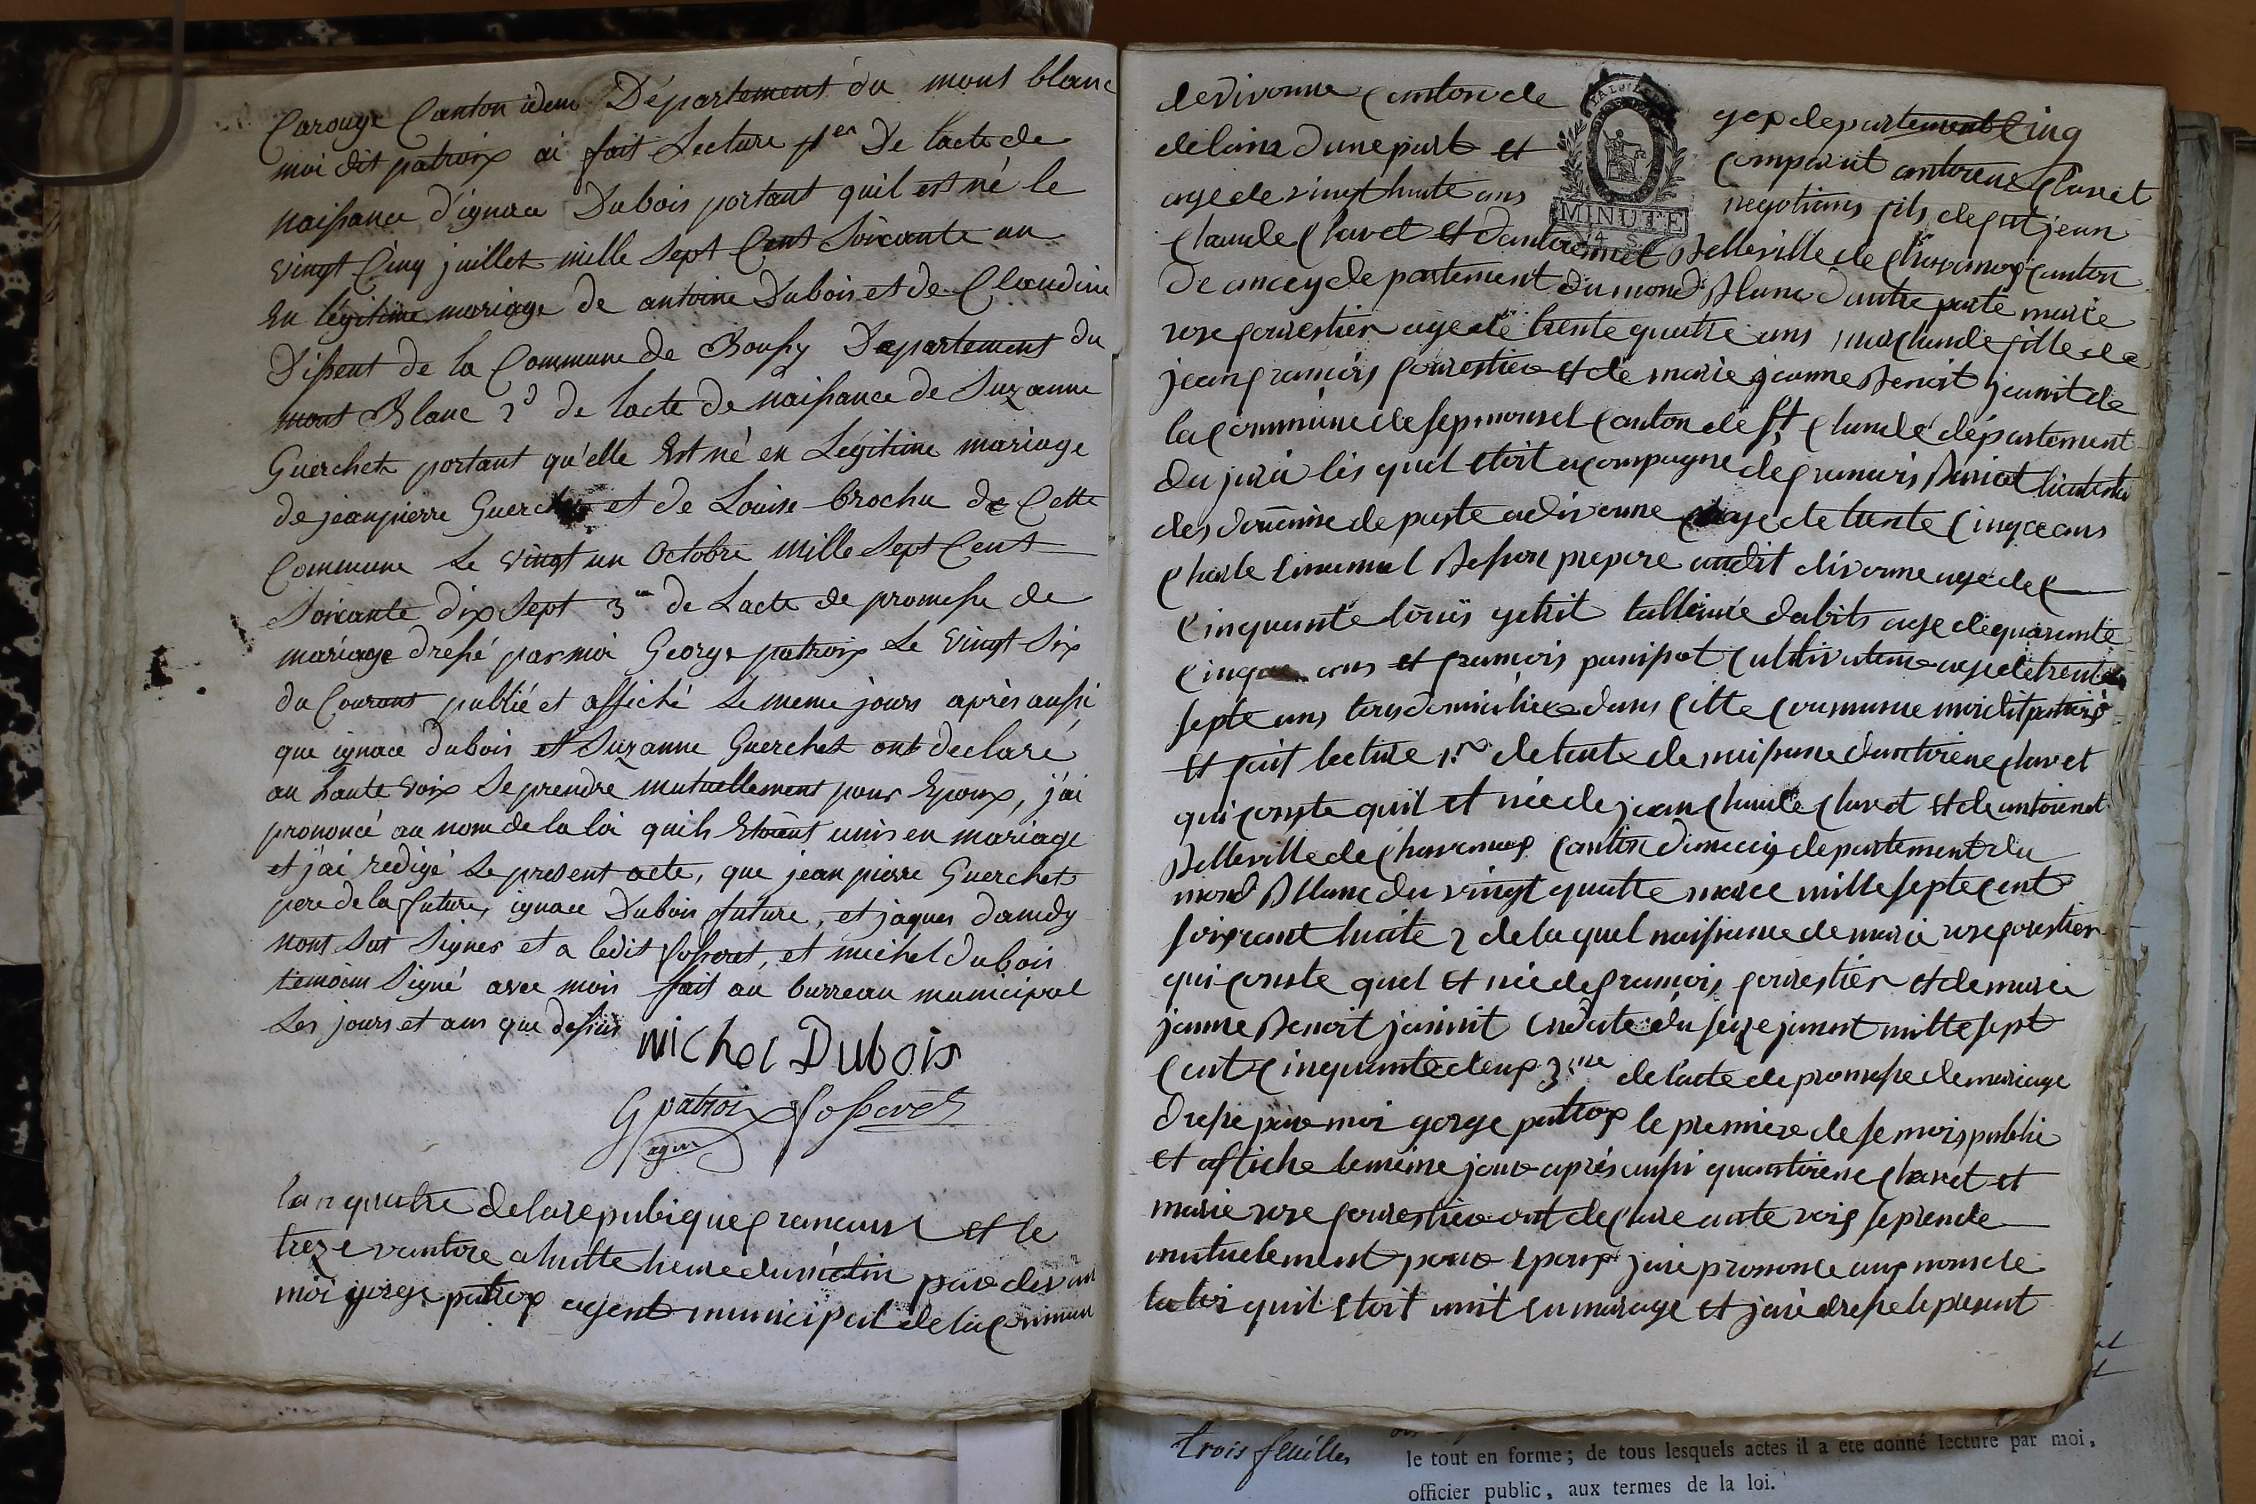 Carouge Canton idem Département du mont blanc
moi dit patroix ai fait Lecture 1er De lacte de
naissance d'ignace Dubois portant quil est né le
vingt Cinq juillet mille Sept Cent Soixante un
En légitime mariage de antoine Dubois et de Claudine
Dissent de la Commune de Boussy Departement du
mont Blanc 2d de lacte de naissance de Suzanne
Guerchet portant qu'elle Est né en Légitime mariage
de jeanpierre Guerchet et de Louise brochu de Cette
Commune Le vingt un Octobre mille Sept Cent
Soixante dix Sept 3me de Lacte de promesse de
mariage dressé par moi George patroix Le vingt Six
du Courant publié et affiché Le meme jours après aussi
que ignace dubois et Suzanne Guerchet ont declaré
au haute voix Se prendre mutuellement pour Epoux, j'ai
prononcé au nom de la loi quils Etoient unis en mariage
et j'ai redigé Le present acte, que jean pierre Guerchet
pere de la future, ignace Dubois future, et jaques damdy
nont Sut Signer et a ledit Josseret, et michel dubois
temoins Signé avec mois fait au burreau municipal
Les jours et ans que dessus
michel Dubois
G patroix Josseret
agen
lan quatre de la republique francaise et le
treze vantose a huitte heure du matin pardevan
moi gorge patrox agent municipal de la commun
de divonne canton de gex departement
de lains dune part et comparut antoiene Clavet
age de vingt huite ans negotians fils de fut jean
Claude Clavet et dantoienet Belleville de Chavanox canton
De ancey departement du mond Blanc dautre parte marie
rose fourestier age de trente quatre ans marchande fille de
jean francois fourestier et de marie jeanne Benoit de
la commune de sepmonsel canton de st Claude département
du jura les quel etoit acompagne de francois
des douanne de poste a divonne age de trente cinq ans
Charle Emanuel Besson prepose audit divonne age de
Cinquante louis tallieure dabits age de quarante
Cinq ans et francois panissot Cultivateure age de trente
septe ans tous domicilies dans cette commune moi dit patrox
et fait lecture 1re de lacte de naissance dantoiene Clavet
qui conste quil et née de jean Claude Clavet et de antoienet
Belleville de Chavanox canton danecy departement du
mond Blanc du vingt quatre marce mille septe cent
soixant huite 2 de la quel naissance de marie rose forestier
qui conste quel et née de francois fourestier et de marie
janne Benoit en date du seize mille sept
Cent Cinquante deux 3me de lacte de promesse de mariage
dresse pare moi gorge patrox le premiere de se mois publie
et aftiche le meine joure après aussi quantoiene Clavet et
marie rose fourestiere ont declare aute voix se prende
mutuelement poure epoux jaie prononce aux nom de
la loi quil etoit unit en marage et jaie dresse le present
MINUTE
trois feuilles
le tout en forme; de tous lesquels actes il a été donné lecture par moi,
officier public, aux termes de la loi.